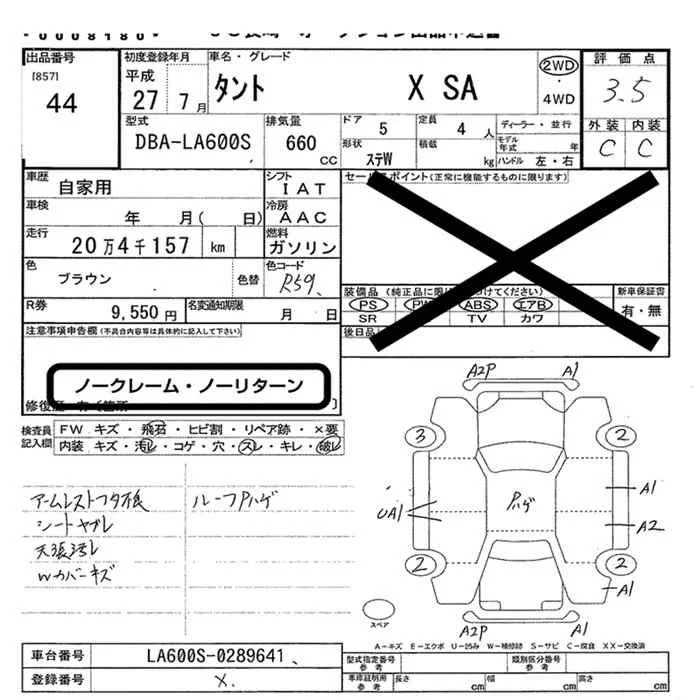 出品番号
[857]
44
初度登録年月
平成
27 7月
車名・グレード
タント X SA
2WD
・
4WD
評価点
3.5
外装 内装
C C
型式
DBA-LA600S
排気量
660
CC
ドア 5
定員 4 人
ディーラー・並行
モデル年式 年
形状 ステW
積載 kg
ハンドル 左・右
車歴 自家用
シフト IAT
セールスポイント(正常に機能するものに限ります)
車検 年 月( 日)
冷房 AAC
走行 20万4千157 km
燃料 ガソリン
色 ブラウン 色替
色コード R59
R券 9,550円
名変通知期限 月 日
装備品(純正品に限
けてください)
新車保証書
PS PW ABS エアB
有・無
SR TV カワ
後日品
注意事項申告欄(不具合内容等は具体的に記入して下さい)
ノークレーム・ノーリターン
検査員記入欄
FW キズ・飛石・ヒビ割・リペア跡・×要
内装 キズ・汚レ・コゲ・穴・スレ・キレ・破レ
ルーフPハゲ
シートヤブレ
天張汚レ
Wカバーキズ
A2P A1
3 2
UA1
Pハゲ
A1
A2
2 2
A1
A2P A1
スペア
A-キズ E-エクボ U-凹み W-補修跡 S-サビ C-腐食 XX-交換済
車台番号 LA600S-0289641
登録番号 X.
型式指定番号 参考
類別区分番号 参考
車庫証明用 参考
長さ cm
幅 cm
高さ cm